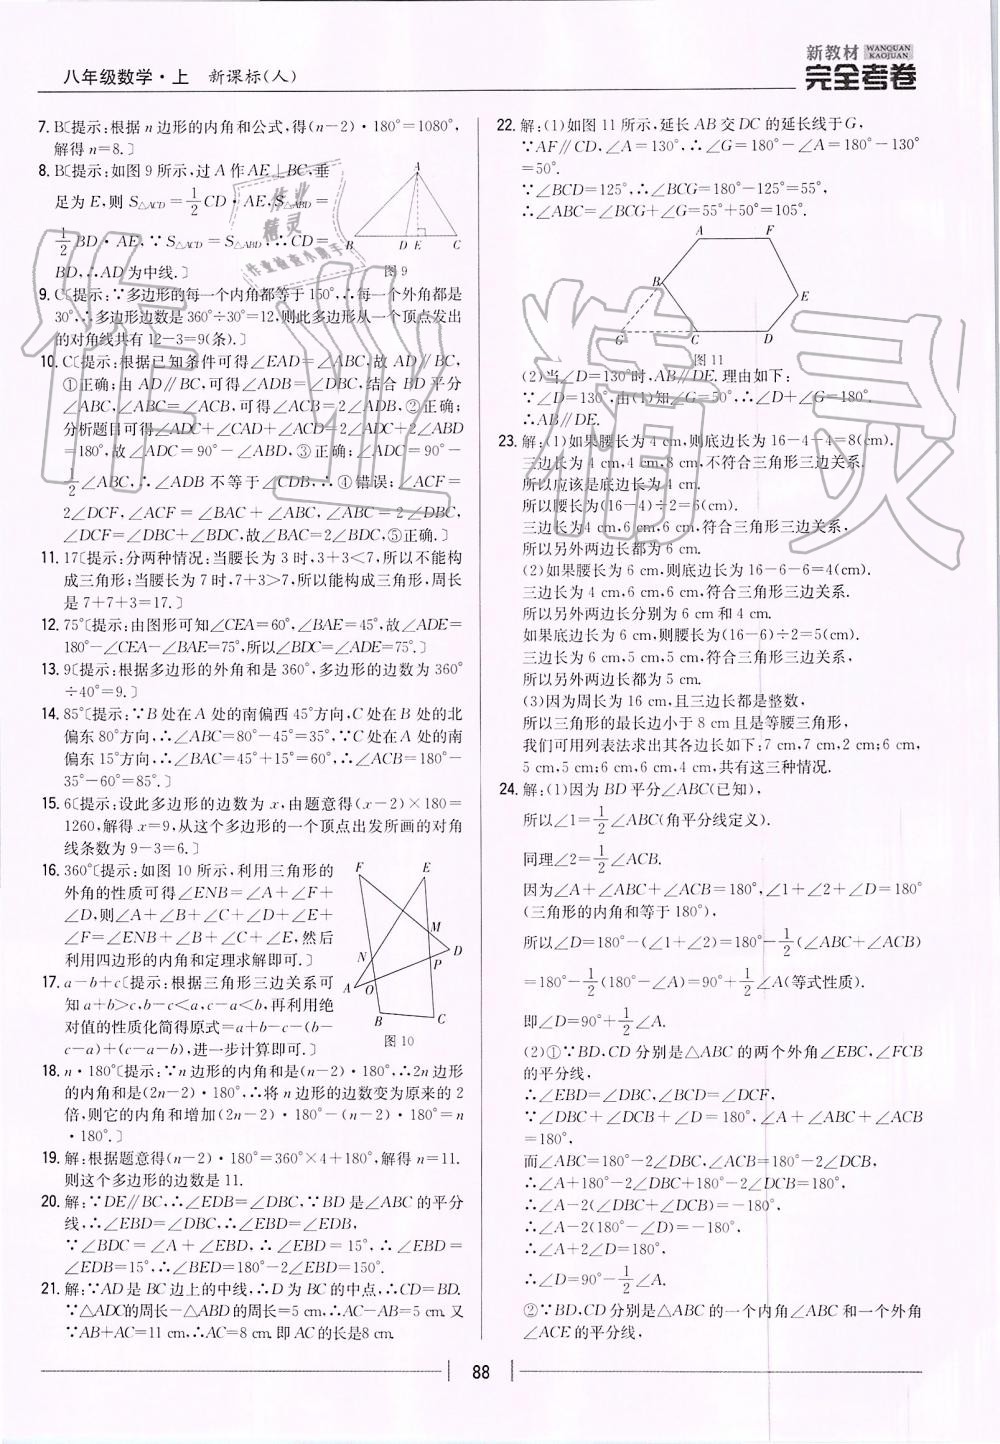 八年级数学·上 新课标(人)
新教材 WANQUAN KAOJUAN
完全考卷
7. B〔提示:根据n边形的内角和公式,得(n−2)·180°=1080°,
解得n=8.〕
8. B〔提示:如图9所示,过A作AE⊥BC,垂
足为E,则S△ACD=1/2CD·AE,S△ABD=
1/2BD·AE,∵S△ACD=S△ABD,∴CD=
BD,∴AD为中线.〕
A
B D E C
图9
9. C〔提示:∵多边形的每一个内角都等于150°,∴每一个外角都是
30°,∴多边形边数是360°÷30°=12,则此多边形从一个顶点发出
的对角线共有12−3=9(条).〕
10. C〔提示:根据已知条件可得∠EAD=∠ABC,故AD∥BC,
①正确;由AD∥BC,可得∠ADB=∠DBC,结合BD平分
∠ABC,∠ABC=∠ACB,可得∠ACB=2∠ADB,②正确;
分析题目可得∠ADC+∠CAD+∠ACD=2∠ADC+2∠ABD
=180°,故∠ADC=90°−∠ABD,③正确;∠ADC=90°−
1/2∠ABC,∴∠ADB不等于∠CDB,∴④错误;∠ACF=
2∠DCF,∠ACF=∠BAC+∠ABC,∠ABC=2∠DBC,
∠DCF=∠DBC+∠BDC,故∠BAC=2∠BDC,⑤正确.〕
11. 17〔提示:分两种情况:当腰长为3时,3+3<7,所以不能构
成三角形;当腰长为7时,7+3>7,所以能构成三角形,周长
是7+7+3=17.〕
12. 75°〔提示:由图形可知∠CEA=60°,∠BAE=45°,故∠ADE=
180°−∠CEA−∠BAE=75°,所以∠BDC=∠ADE=75°.〕
13. 9〔提示:根据多边形的外角和是360°,多边形的边数为360°
÷40°=9.〕
14. 85°〔提示:∵B处在A处的南偏西45°方向,C处在B处的北
偏东80°方向,∴∠ABC=80°−45°=35°,∵C处在A处的南
偏东15°方向,∴∠BAC=45°+15°=60°,∴∠ACB=180°−
35°−60°=85°.〕
15. 6〔提示:设此多边形的边数为x,由题意得(x−2)×180=
1260,解得x=9,从这个多边形的一个顶点出发所画的对角
线条数为9−3=6.〕
16. 360°〔提示:如图10所示,利用三角形的
外角的性质可得∠ENB=∠A+∠F+
∠D,则∠A+∠B+∠C+∠D+∠E+
∠F=∠ENB+∠B+∠C+∠E,然后
利用四边形的内角和定理求解即可.〕
F E
M
N P D
A O
B C
图10
17. a−b+c〔提示:根据三角形三边关系可
知a+b>c,b−c<a,c−a<b,再利用绝
对值的性质化简得原式=a+b−c−(b−
c−a)+(c−a−b),进一步计算即可.〕
18. n·180°〔提示:∵n边形的内角和是(n−2)·180°,∴2n边形
的内角和是(2n−2)·180°,∴将n边形的边数变为原来的2
倍,则它的内角和增加(2n−2)·180°−(n−2)·180°=n
·180°.〕
19. 解:根据题意得(n−2)·180°=360°×4+180°,解得n=11.
则这个多边形的边数是11.
20. 解:∵DE∥BC,∴∠EDB=∠DBC,∵BD是∠ABC的平分
线,∴∠EBD=∠DBC,∴∠EBD=∠EDB,
∵∠BDC=∠A+∠EBD,∴∠EBD=15°,∴∠EBD=
∠EDB=15°,∴∠BED=180°−2∠EBD=150°.
21. 解:∵AD是BC边上的中线,∴D为BC的中点,∴CD=BD.
∵△ADC的周长−△ABD的周长=5 cm,∴AC−AB=5 cm.又
∵AB+AC=11 cm,∴AC=8 cm.即AC的长是8 cm.
22. 解:(1)如图11所示,延长AB交DC的延长线于G,
∵AF∥CD,∠A=130°,∴∠G=180°−∠A=180°−130°
=50°.
∵∠BCD=125°,∴∠BCG=180°−125°=55°,
∴∠ABC=∠BCG+∠G=55°+50°=105°.
A F
B E
G C D
图11
(2)当∠D=130°时,AB∥DE.理由如下:
∵∠D=130°,由(1)知∠G=50°,∴∠D+∠G=180°.
∴AB∥DE.
23. 解:(1)如果腰长为4 cm,则底边长为16−4−4=8(cm).
三边长为4 cm,4 cm,8 cm,不符合三角形三边关系.
所以应该是底边长为4 cm.
所以腰长为(16−4)÷2=6(cm).
三边长为4 cm,6 cm,6 cm,符合三角形三边关系,
所以另外两边长都为6 cm.
(2)如果腰长为6 cm,则底边长为16−6−6=4(cm).
三边长为4 cm,6 cm,6 cm,符合三角形三边关系.
所以另外两边长分别为6 cm和4 cm.
如果底边长为6 cm,则腰长为(16−6)÷2=5(cm).
三边长为6 cm,5 cm,5 cm,符合三角形三边关系,
所以另外两边长都为5 cm.
(3)因为周长为16 cm,且三边长都是整数,
所以三角形的最长边小于8 cm且是等腰三角形,
我们可用列表法求出其各边长如下:7 cm,7 cm,2 cm;6 cm,
5 cm,5 cm;6 cm,6 cm,4 cm,共有这三种情况.
24. 解:(1)因为BD平分∠ABC(已知),
所以∠1=1/2∠ABC(角平分线定义).
同理∠2=1/2∠ACB.
因为∠A+∠ABC+∠ACB=180°,∠1+∠2+∠D=180°
(三角形的内角和等于180°),
所以∠D=180°−(∠1+∠2)=180°−1/2(∠ABC+∠ACB)
=180°−1/2(180°−∠A)=90°+1/2∠A(等式性质).
即∠D=90°+1/2∠A.
(2)①∵BD,CD分别是△ABC的两个外角∠EBC,∠FCB
的平分线,
∴∠EBD=∠DBC,∠BCD=∠DCF,
∵∠DBC+∠DCB+∠D=180°,∠A+∠ABC+∠ACB
=180°,
而∠ABC=180°−2∠DBC,∠ACB=180°−2∠DCB,
∴∠A+180°−2∠DBC+180°−2∠DCB=180°,
∴∠A−2(∠DBC+∠DCB)=−180°,
∴∠A−2(180°−∠D)=−180°,
∴∠A+2∠D=180°,
∴∠D=90°−1/2∠A.
②∵BD,CD分别是△ABC的一个内角∠ABC和一个外角
∠ACE的平分线,
88
作业精灵
作业
精灵
作业检查小助手